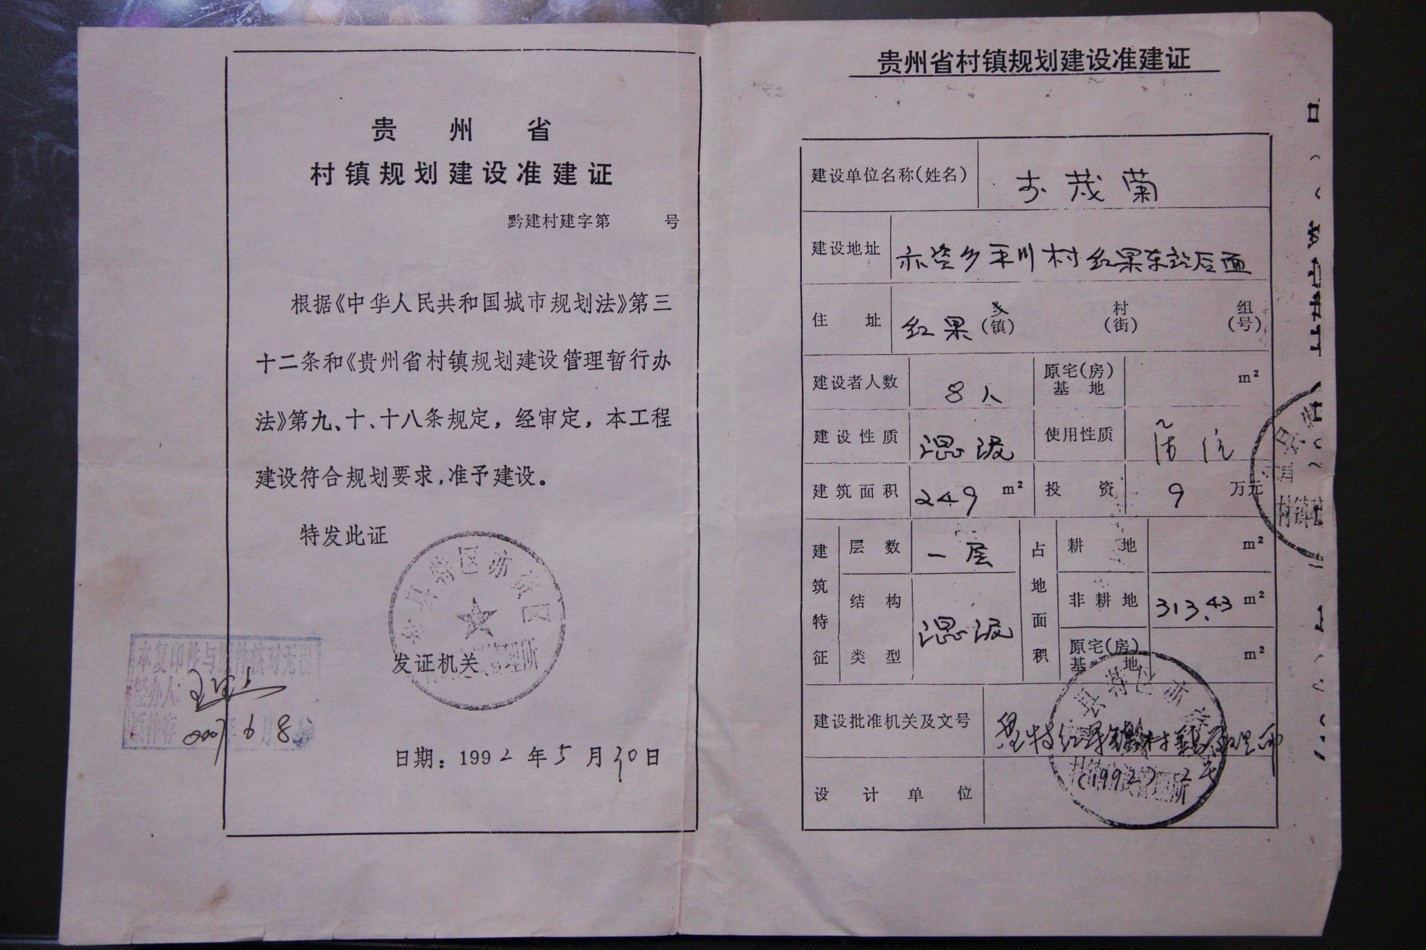 贵 州 省
村镇规划建设准建证
黔建村建字第 号
根据《中华人民共和国城市规划法》第三
十二条和《贵州省村镇规划建设管理暂行办
法》第九、十、十八条规定，经审定，本工程
建设符合规划要求，准予建设。
特发此证
县特区亦资区
管理所
发证机关
日期：1992年5月30日
本复印件与原件核对无误
经办人：
原件存
2007年6月8
贵州省村镇规划建设准建证
建设单位名称(姓名) 茂菊
建设地址 亦资乡平川村红果车站后面
住 址 红果 (镇) 村(街) 组(号)
建设者人数 8人 原宅(房)基地 m²
建设性质 混 使用性质 住
建筑面积 249 m² 投 资 9 万元
建筑特征 层数 一层 占地面积 耕 地 m²
结构类型 混 非耕地 313.43 m²
原宅(房)基地 m²
建设批准机关及文号 特红果镇村 管理所
(1992) 2号
设 计 单 位
县特区亦资
村镇 管理所
县
村镇